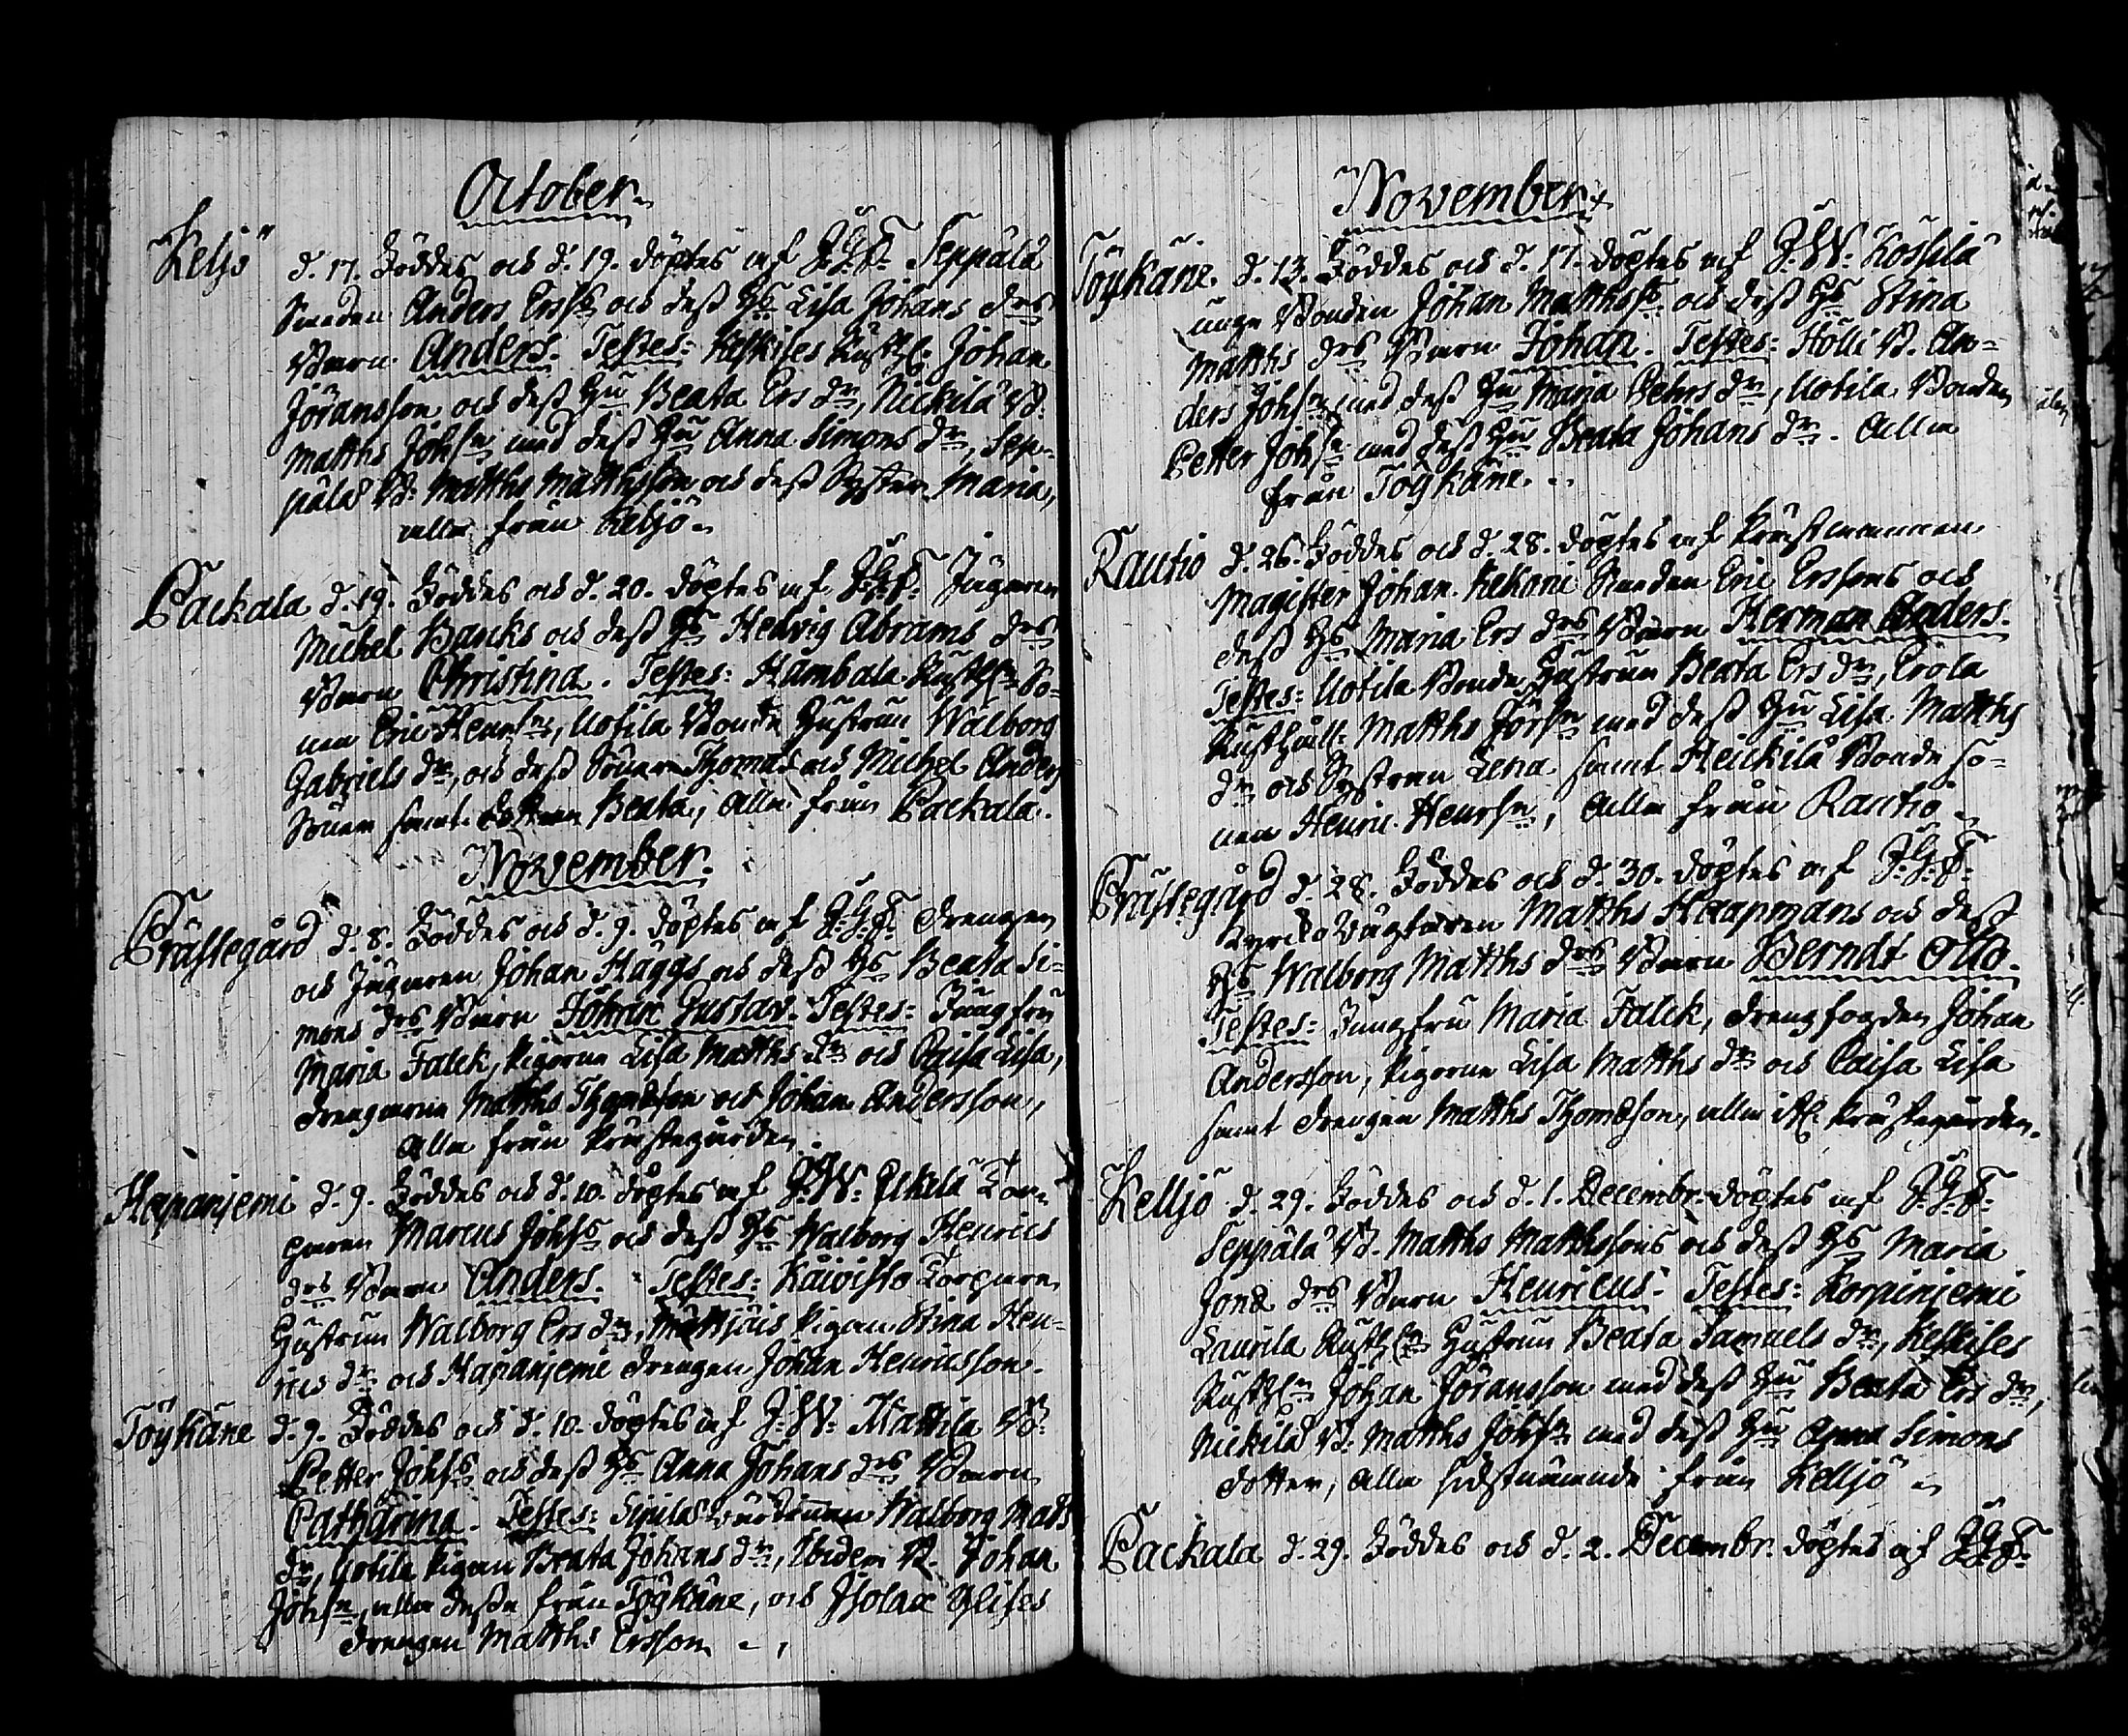 October
Keljö d. 17. Föddes och d. 19. döptes af J.G.F. Seppälä
Smeden Anders Erss's och dess Hs Lisa Johans drs
Barn Anders. Testes: Keskises Rusth: Johan
Jöransson och dess Hu Beata Ers dr, Nickilä B.
Matths Johsn med dess Hu Anna Simons dr, Sep-
pälä B: Matths Matthsson och dess Syster Maria,
alla från Keljö
Packala d. 19. Föddes och d. 20. döptes af J.G.F. Jägaren
Michel Bancks och dess Hs Hedvig Abrams drs
Barn Christina. Testes: Hambala Rusth: So-
nen Eric Henrsn, Uotila Bonde Hustrun Walborg
Gabriels dr, och dess Söner Thomas och Michel Anders
Söner samt dottren Beata, alla från Packala.
November.
Prästegård d. 8. Föddes och d. 9. döptes af J.G.F. Drengen
och Jägaren Johan Häggs och dess Hs Beata Si-
mons drs Barn Johan Gustav. Testes: Jungfru
Maria Falck, Pigorna Lisa Matths dr och Caisa Lisa,
drengarna Matths Thomsson och Johan Andersson,
alla från Prästegården.
Hapanjemi d. 9. Föddes och d. 10. döptes af J.W. Torp
paren Marcus Johss och dess Hs Walborg Henrics
drs Barn Anders. Testes: Koivisto Torpare
Hustrun Walborg Ers dr, Pigan Stina Hen-
rics dr och Hapanjemi drengen Johan Henricsson.
Töykäne d. 9. Föddes och d. 10. döptes af J.W. Mattila B.
Petter Johss och dess Hs Anna Johans drs Barn
Catharina. Testes: Sipilä Värdinnan Walborg Mats
dr, Uotila Pigan Beata Johans dr, Ibidem B. Johan
Johsn, alla desse från Töykäne, och
drengen Matths Ersson
November
Töykäne. d. 13. Föddes och d. 17. döptes af J.W. Kossila
unge Bonden Johan Matthss och dess Hs Stina
Matths drs Barn Johan. Testes: Holli B. An-
ders Johsn med dess Hu Maria Pehrs dr, Uotila Bonden
Petter Johsn med dess Hu Beata Johans dr. Alla
från Töykäne.
Rautio d. 26. Föddes och d. 28. döptes af Prästmannen
Magister Johan Kekoni Smeden Eric Erssons och
dess Hs Maria Ers drs Barn Herman Anders.
Testes: Uotila Bonde Hustrun Beata Ers dr, Erola
Rusthåll: Matths Jörsn med dess Hu Lisa Matths
dr och Systren Lena samt Heickilä Bonde So-
nen Henric Henrsn, alla från Rautio
Prästegård d. 28. Föddes och d. 30. döptes af J.G.F.
Kyrcko Vägtaren Matths Haapmans och dess
Hs Walborg Matths drs Barn Berndt Otto.
Testes: Jungfru Maria Falck, Drengfogden Johan
Andersson, Pigorna Lisa Matths dr och Caisa Lisa
samt drengen Matths Thomsson, alla ifr. Prästegården.
Kelljö d. 29. Föddes och d. 1. Decembr. döptes af J.G.F.
Seppälä B. Matths Matthssons och dess Hs Maria
Jons drs Barn Henricus. Testes: Korpinjemi
Laurila Rusthn Hustrun Beata Samuels dr, Keskises
Rusthn Johan Jöransson med dess Hu Beata Ers dr,
Nickilä B. Matths Johsn med dess Hu Anna Simons
dotter, alla sidstnämnde från Kelljö
Packala d. 29. Föddes och d. 2. Decembr. döptes af J.G.F.